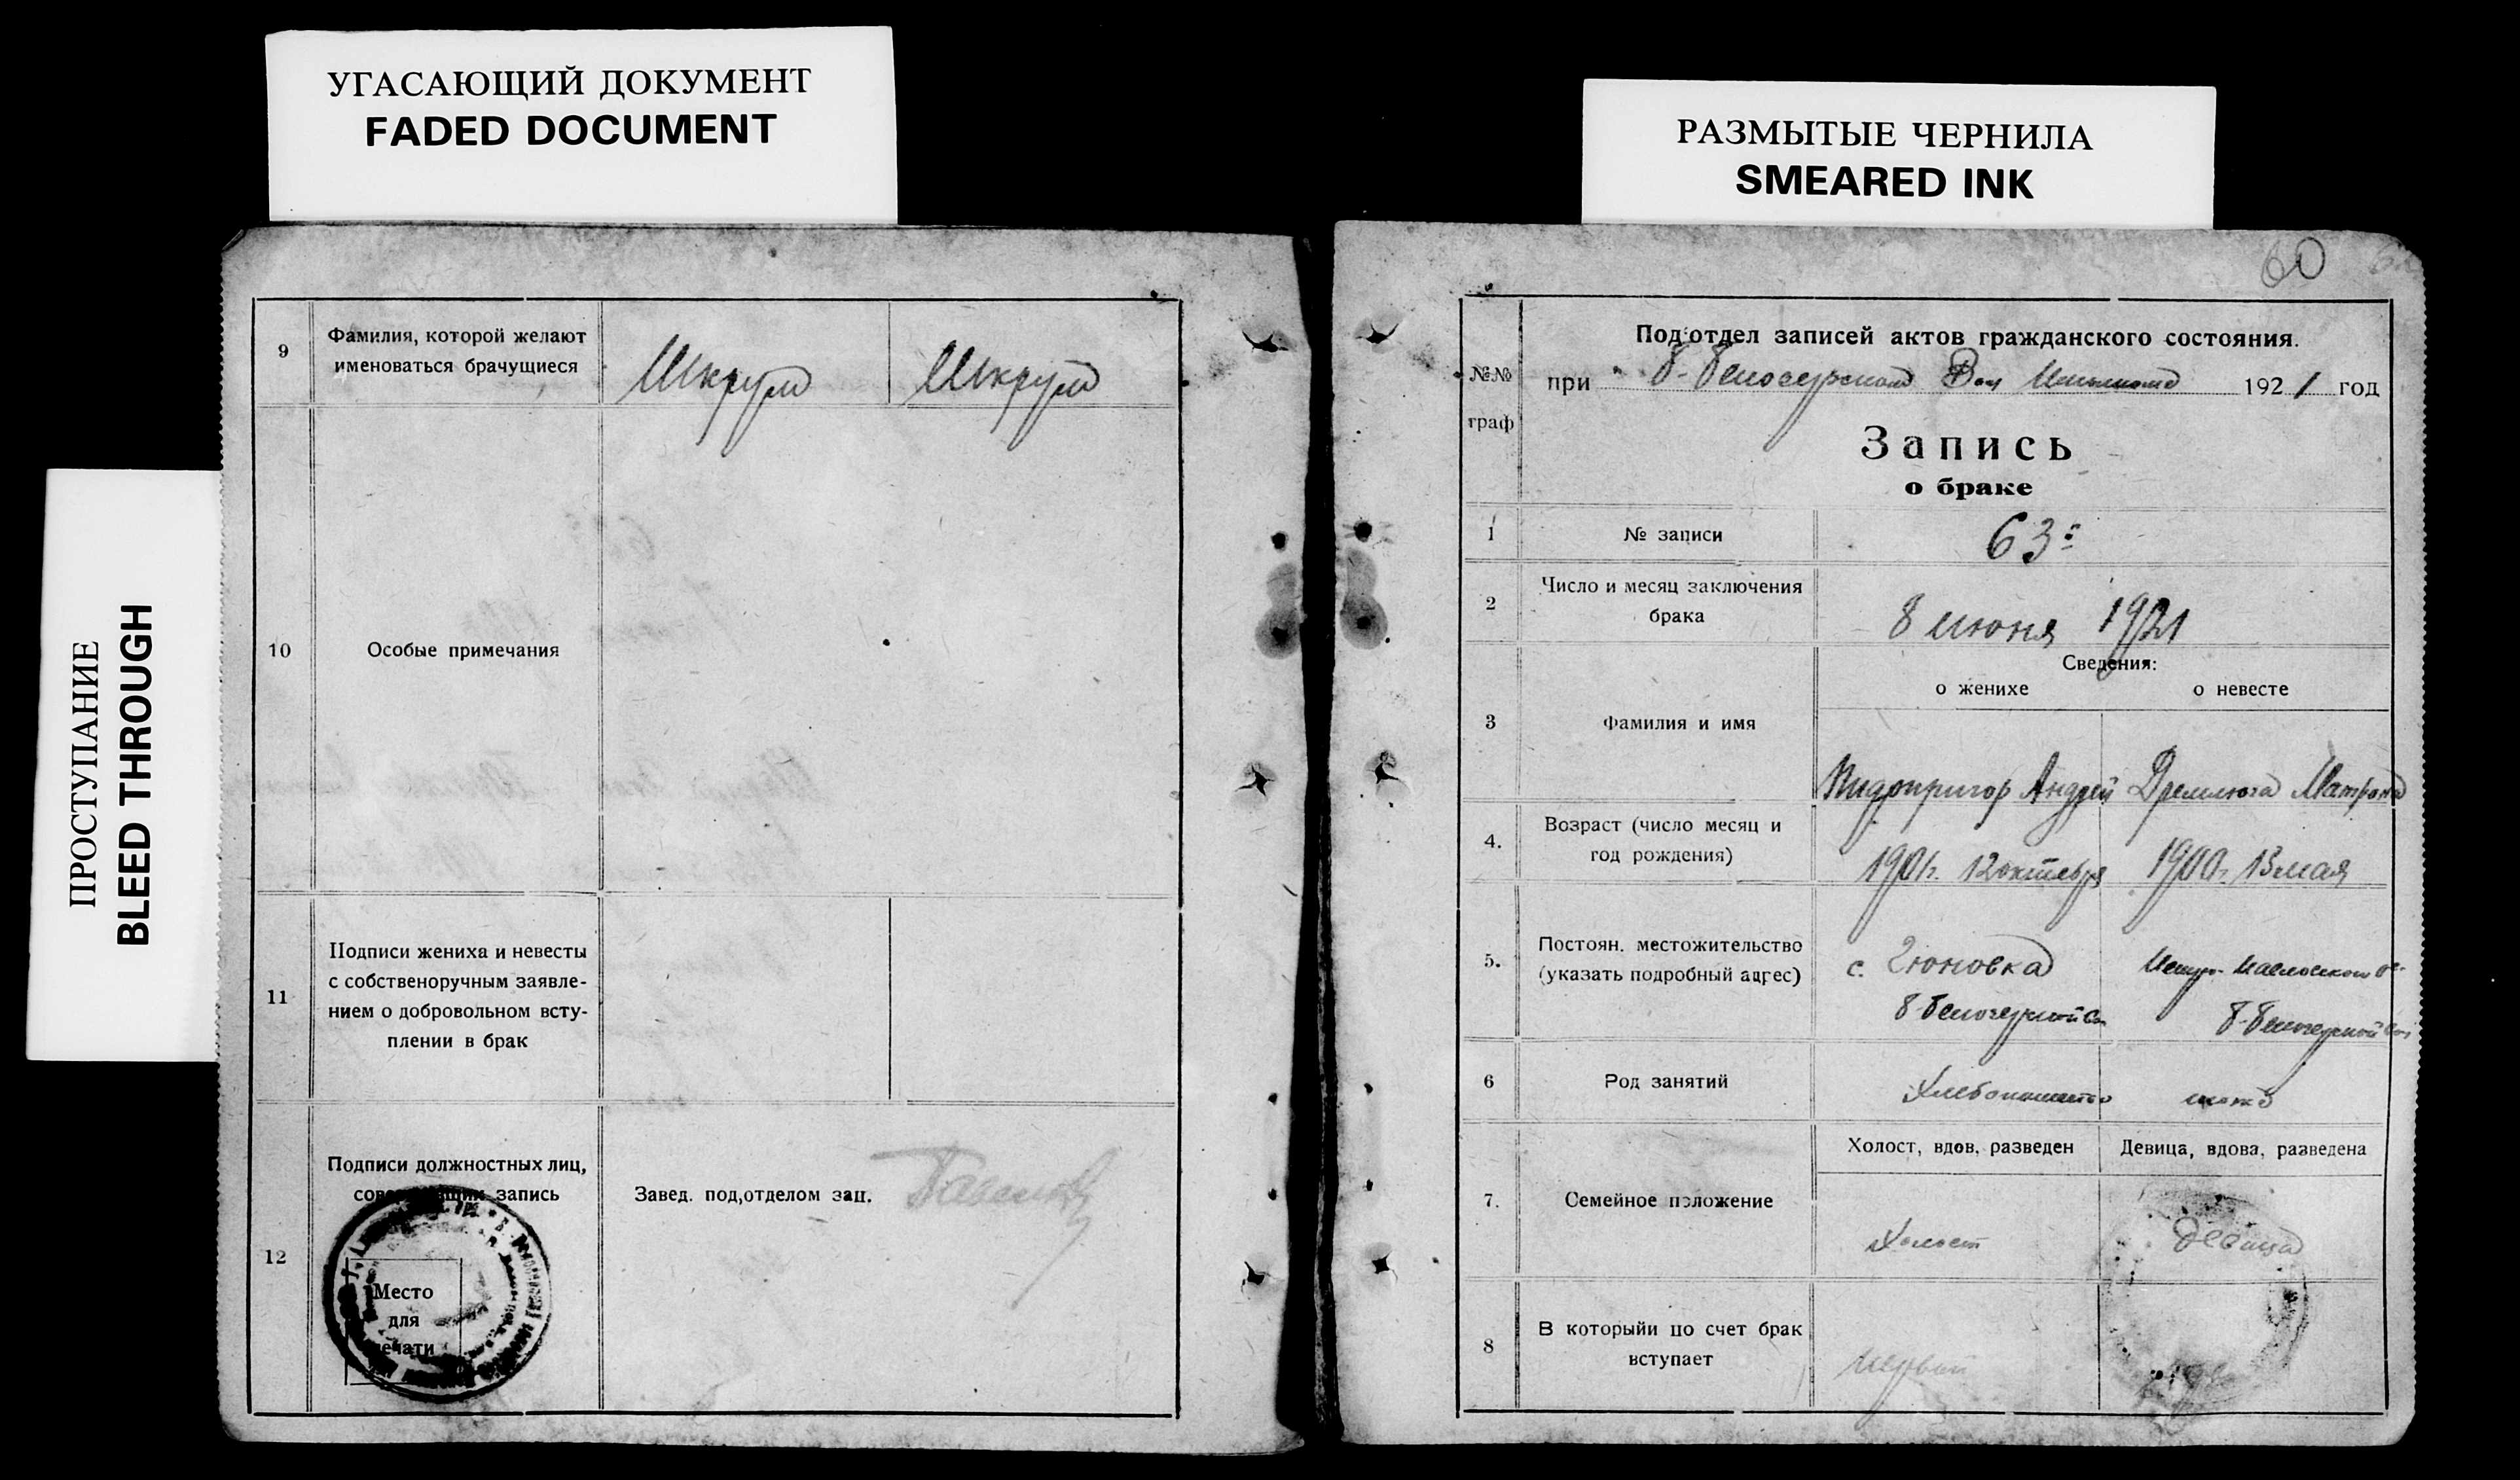 УГАСАЮЩИЙ ДОКУМЕНТ
FADED DOCUMENT
РАЗМЫТЫЕ ЧЕРНИЛА
SMEARED INK
ПРОСТУПАНИЕ
BLEED THROUGH
9
Фамилия, которой желают
именоваться брачущиеся
Шкрум Шкрум
10
Особые примечания
11
Подписи жениха и невесты
с собственоручным заявле-
нием о добровольном всту-
плении в брак
12
Подписи должностных лиц,
запись
Завед. под,отделом зап.
Место
для
печати
60
№№
граф
Под'отдел записей актов гражданского состояния.
при 1921 год
Запись
о браке
1
№ записи
63
2
Число и месяц заключения
брака
8 июня 1921
Сведения:
о женихе о невесте
3
Фамилия и имя
Пидопригор Андрей Дремлюга Матрона
4.
Возраст (число месяц и
год рождения)
1901г. 12 октября 1900г. 13 мая
5.
Постоян. местожительство
(указать подробный адрес)
с.
6
Род занятий
Хлебопашество
7.
Семейное положение
Холост, вдов, разведен Девица, вдова, разведена
Холост девица
8
В которыйи по счет брак
вступает
первый